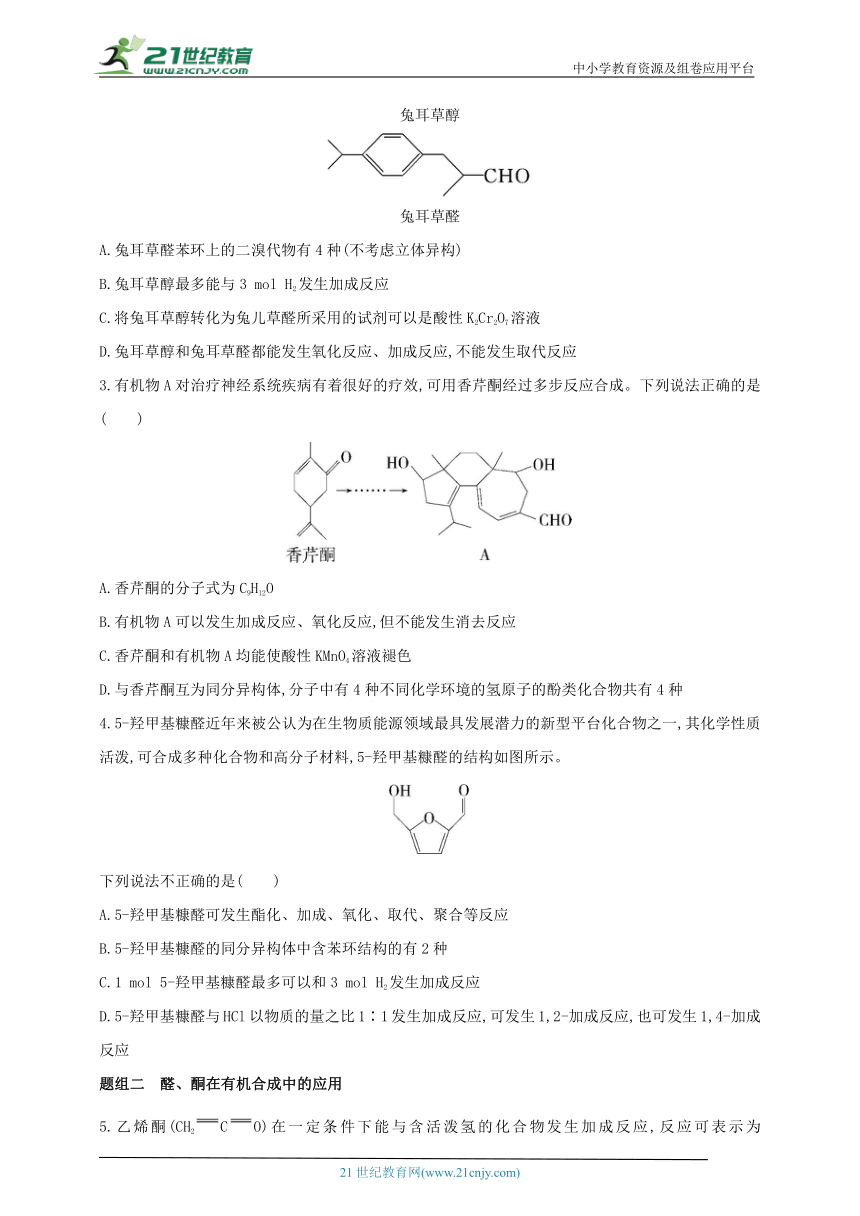 21世纪教育
WWW.21CNJY.COM
中小学教育资源及组卷应用平台
兔耳草醇
CHO
兔耳草醛
A.兔耳草醛苯环上的二溴代物有4种(不考虑立体异构)
B.兔耳草醇最多能与3 mol H2发生加成反应
C.将兔耳草醇转化为兔儿草醛所采用的试剂可以是酸性K2Cr2O7溶液
D.兔耳草醇和兔耳草醛都能发生氧化反应、加成反应,不能发生取代反应
3.有机物A对治疗神经系统疾病有着很好的疗效,可用香芹酮经过多步反应合成。下列说法正确的是
(  )
O HO OH CHO
香芹酮 A
A.香芹酮的分子式为C9H12O
B.有机物A可以发生加成反应、氧化反应,但不能发生消去反应
C.香芹酮和有机物A均能使酸性KMnO4溶液褪色
D.与香芹酮互为同分异构体,分子中有4种不同化学环境的氢原子的酚类化合物共有4种
4.5-羟甲基糠醛近年来被公认为在生物质能源领域最具发展潜力的新型平台化合物之一,其化学性质
活泼,可合成多种化合物和高分子材料,5-羟甲基糠醛的结构如图所示。
OH O
O
下列说法不正确的是(  )
A.5-羟甲基糠醛可发生酯化、加成、氧化、取代、聚合等反应
B.5-羟甲基糠醛的同分异构体中含苯环结构的有2种
C.1 mol 5-羟甲基糠醛最多可以和3 mol H2发生加成反应
D.5-羟甲基糠醛与HCl以物质的量之比1∶1发生加成反应,可发生1,2-加成反应,也可发生1,4-加成
反应
题组二 醛、酮在有机合成中的应用
5.乙烯酮(CH2═C═O)在一定条件下能与含活泼氢的化合物发生加成反应,反应可表示为
21世纪教育网(www.21cnjy.com)